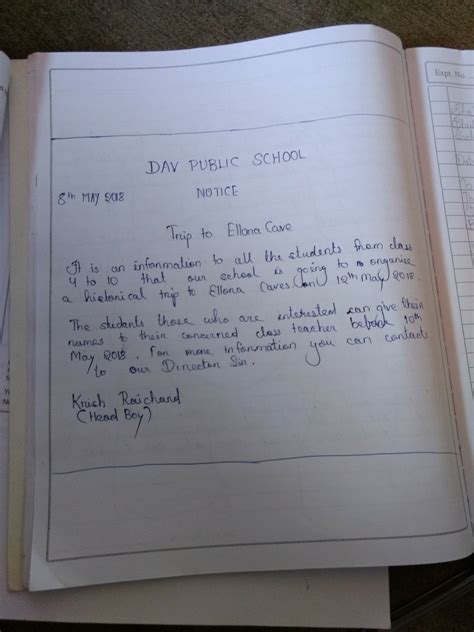 Expt. No.
DAV PUBLIC SCHOOL
8th MAY 2018
NOTICE
Trip to Ellora Cave
It is an information to all the students from class
4 to 10 that our school is going to organise
a historical trip to Ellora Caves on 12th May 2018.
The students those who are interested can give their
names to their concerned class teacher before 10th
May 2018. For more information you can contact
to our Director Sir.
Krish Raichand
(Head Boy)